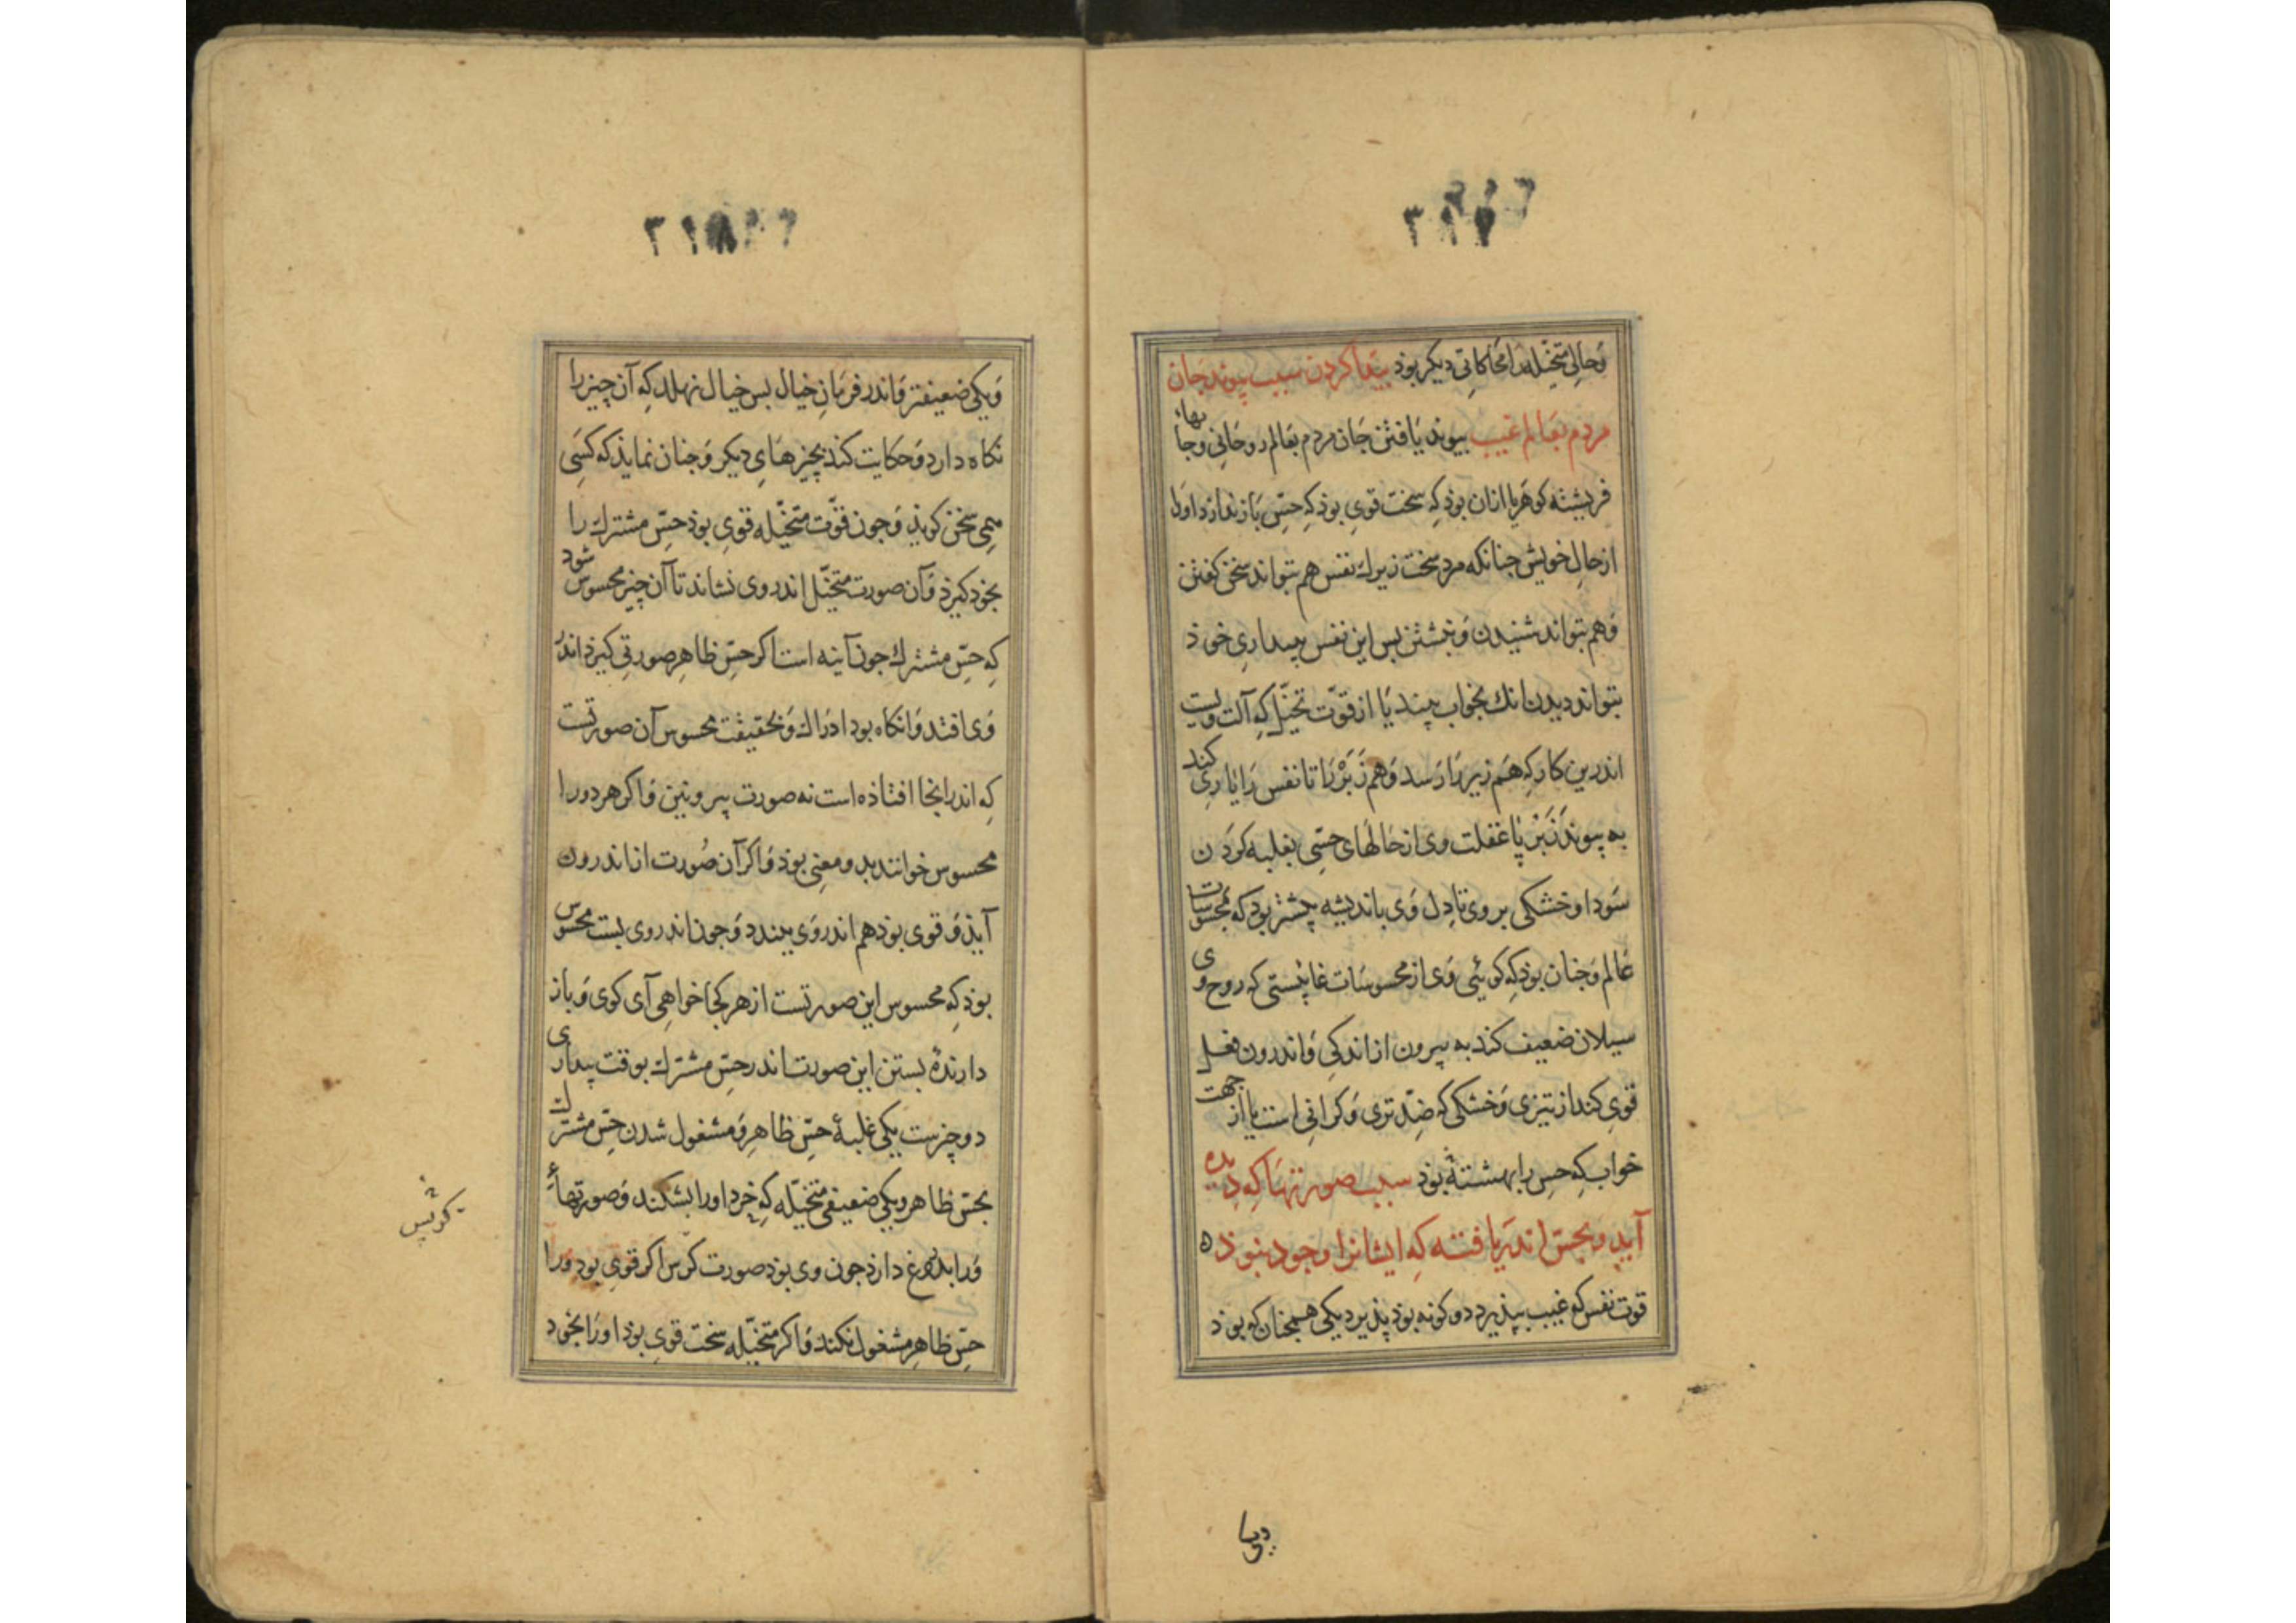 ۳۱۷
وَحالی متخیّله را محاکاتی دیکر بوذ پیدا کردن سبب پیوند جان
مردم بعالم غیب پیوند یافتن جان مردم بعالم روحانی وجانهاء
فریشته کوهر یا ازان بوذ که سخت قوی بوذ که حسّ بازندارد اورا
ازحال خویش جنانکه مرد سخت زیرك نفس هم بتواند سخن کفتن
وَهم بتواند شنیدن وَنبشتن بس این نفس ببیداری خوذ
بتواند دیدن انك بخواب بیند یا از قوّت تخیّل که آلت ویست
اندرین کار که هم زیر را رسد وَهم زَبَرْ را تا نفس را یاری کند
به پیوند زَبَرْ یا غفلت وی از حالهای حسّی بغلبه کردن
سَودا وخشکی بر وی تا دل وَی باندیشه بیشتر بود که بمحسوسات
عالم وَجنان بوذ که کوئی وَی از محسوسات غایبستی که روح وی
سیلان ضعیف کند به بیرون از اندکی وَاندرون فعل
قوی کند از تیزی وَخشکی که ضدّ تری وَکرانی است یا از جهت
خواب که حس را بهشته بوذ سبب صورتهَا که دیده
آید وبحسّ اندر یافته که ایشانرا وجود نبوذ ه
قوت نفس که غیب بپذیرد دو کونه بوذ پذیرد یکی همجنان که بوذ
۳۱۸
وَیکی ضعیفتر وَاندر فرمان خیال بس خیال نهلد که آن چیز را
نکاه دارد وَحکایت کند بچیزهَای دیکر وَجنان نمایذ که کسَی
میمی سخن کویذ وَجون قوّت متخیّله قوی بوذ حسّ مشترك را
بخود کیرذ وَآن صورت متخیّل اندر وی نشاند تا آن چیز محسوس شود
که حسّ مشترك جون آینه است اکر حسّ ظاهر صورتی کیرذ اندر
وَی افتد وَانکاه بود ادراك وَبحقیقت محسوس آن صورتست
که اندر انجا افتاذه است نه صورت بیرونین وَاکر هر دو را
محسوس خوانند بدو معنی بوذ وَاکر آن صُورت از اندرون
آیذ وَقوی بوذ هم اندر وَی ببندد وَجون اندر وی بست محسوس
بوذ که محسوس این صورتست از هر کجا خواهی آی کوی وَباز
دارندهٔ بستن این صورت اندر حسّ مشترك بوقت بیداری
دو چیزست یکی غلبهٔ حسّ ظاهر وَمشغول شدن حسّ مشترك
بحسّ ظاهر ویکی ضعیفی متخیّله که خرد اورا بشکند وَصورتهاء
وَرا بدروغ دارذ جون وی بوذ صورت کرس اکر قوی بود وَرا
حسّ ظاهر مشغول نکند وَاکر متخیّله سخت قوی بوذ اورا بخود